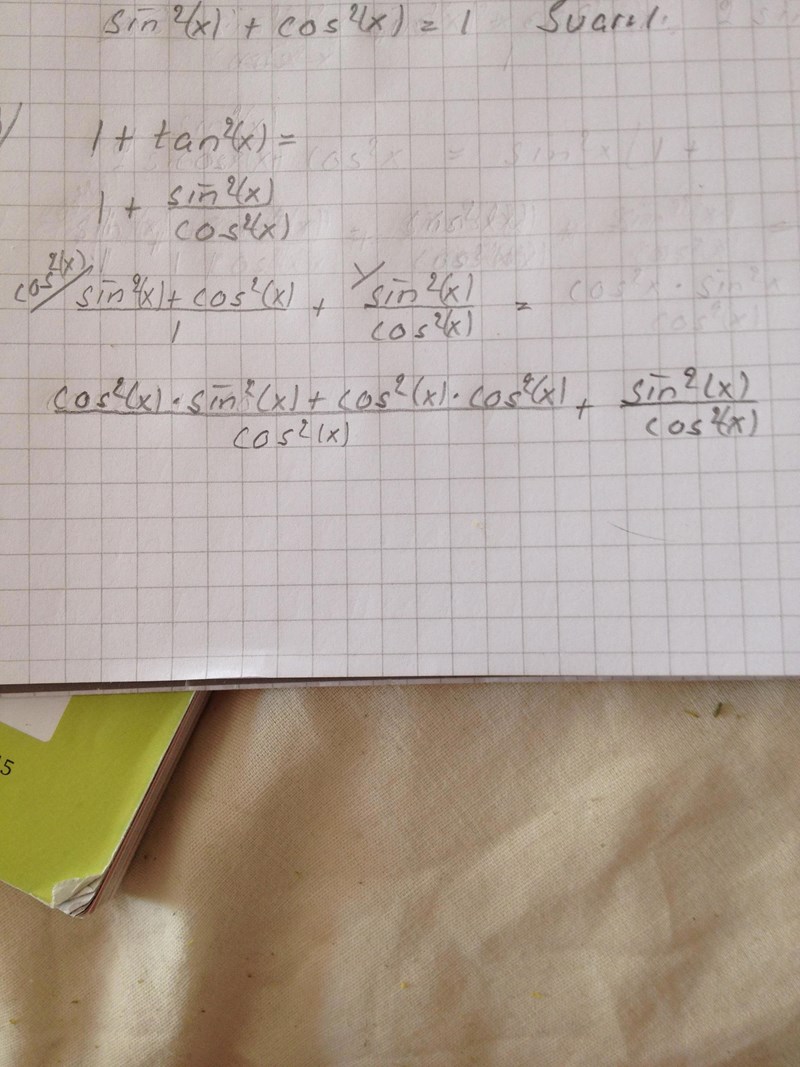 sin²(x) + cos²(x) = 1 Svar: 1.
1 + tan²(x) =
1 + sin²(x)/cos²(x)
cos²(x)/ (sin²(x) + cos²(x))/1 + 1/ sin²(x)/cos²(x) =
(cos²(x) · sin²(x) + cos²(x) · cos²(x))/cos²(x) + sin²(x)/cos²(x)
5